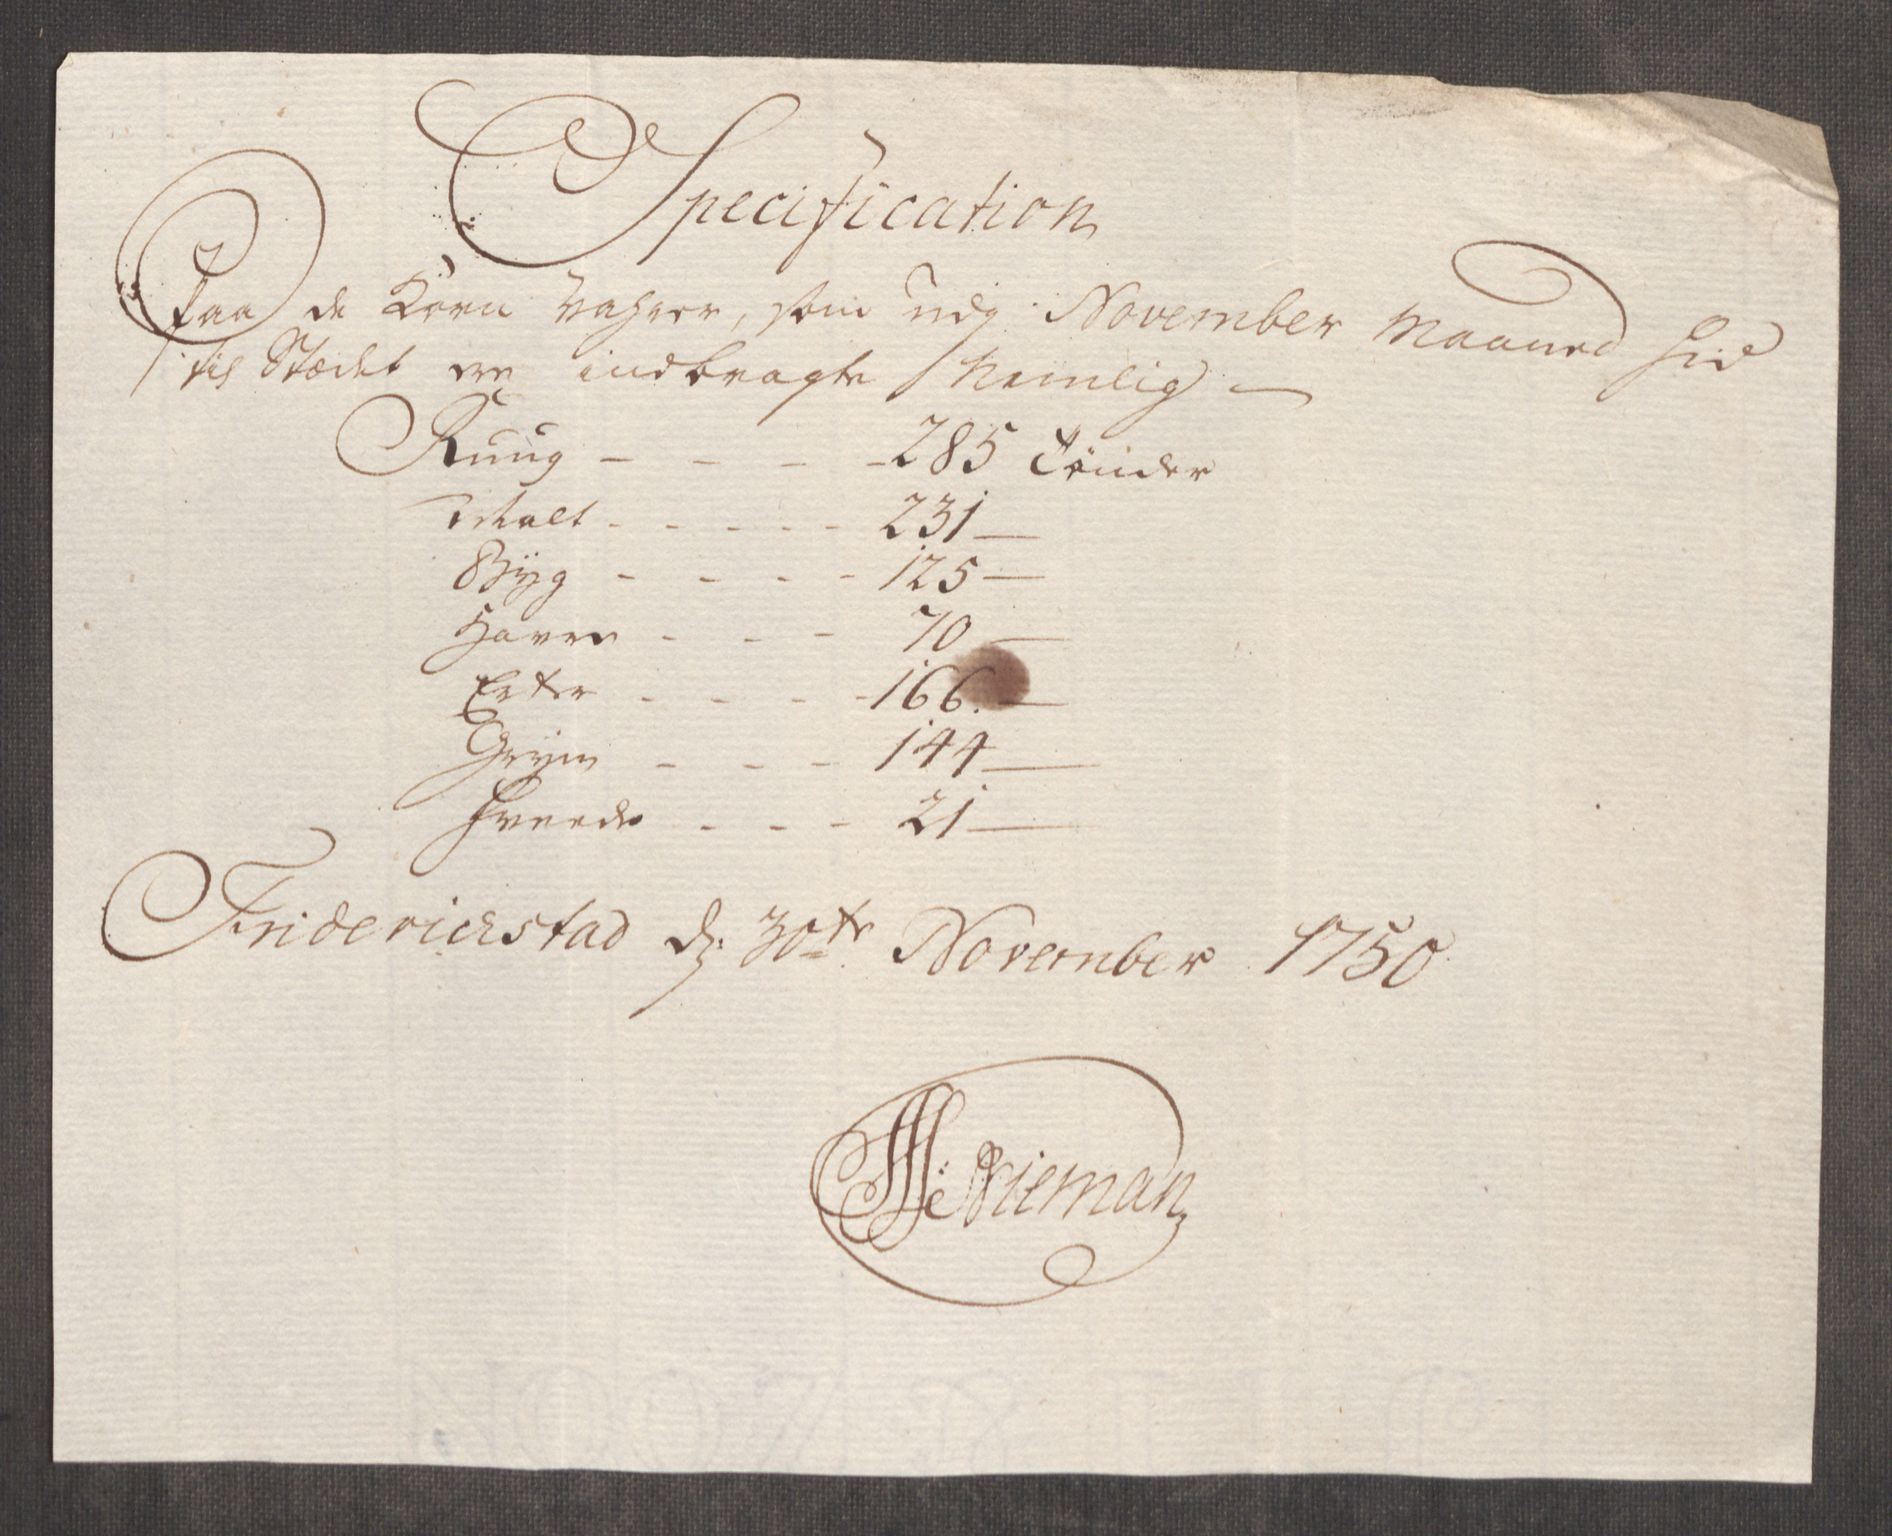 Specification
Paa de Korn Vahrer, som udj November Maaned hid
til Stædet ere indbragte Nemlig
Ruug - - - - 285 Tønder
Malt - - - - - 231 —
Byg - - - - 125 —
Havre - - - 70 —
Erter - - - - 166. —
Gryn - - - 144 —
Hvede - - - 21 —
Friderichstad d: 30te November 1750
Nieman